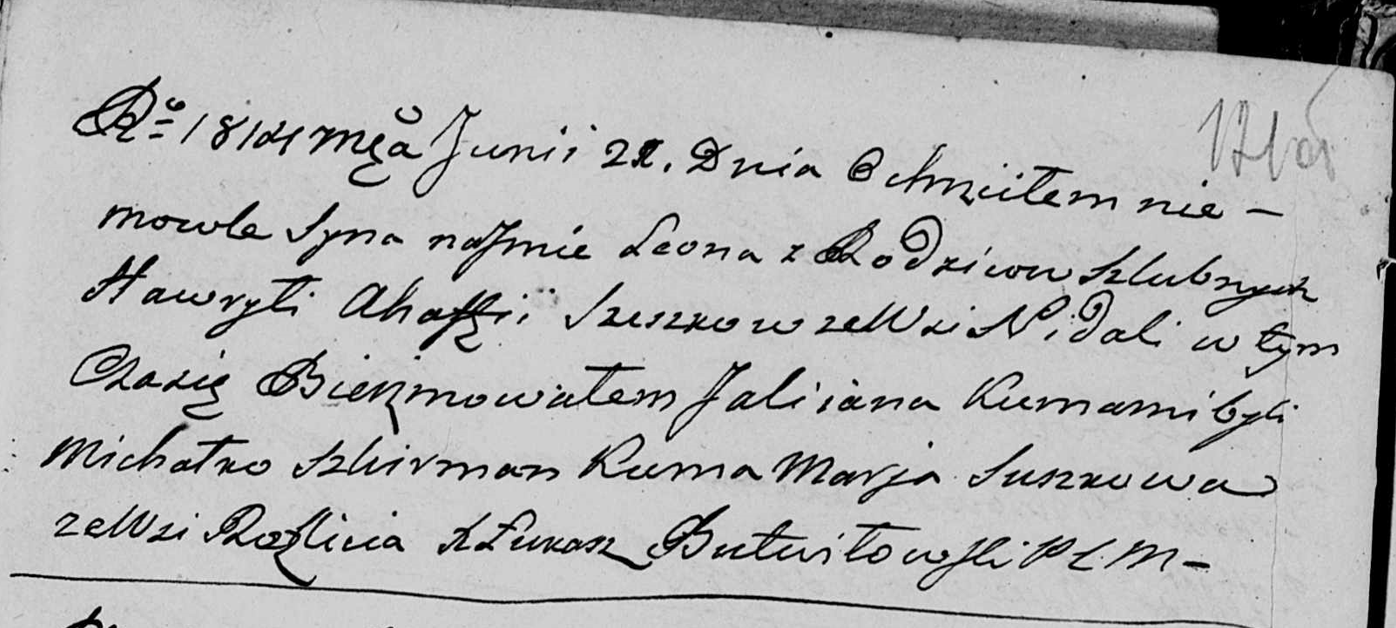 Rº 1814 Męcă Junii 21. Dnia Ochrzciłem nie-
mowle Syna na Jmie Leona z Rodziców szlubnych
Hawryłi Ahafii Szuszkow ze Wsi Nidali w tym
Czasię Bierzmowałem Juliiana Kumami byli
Michałko Szkirman Kuma Marja Suszkowa
ze Wsi X Łukasz Butwiłowski P Ł M-